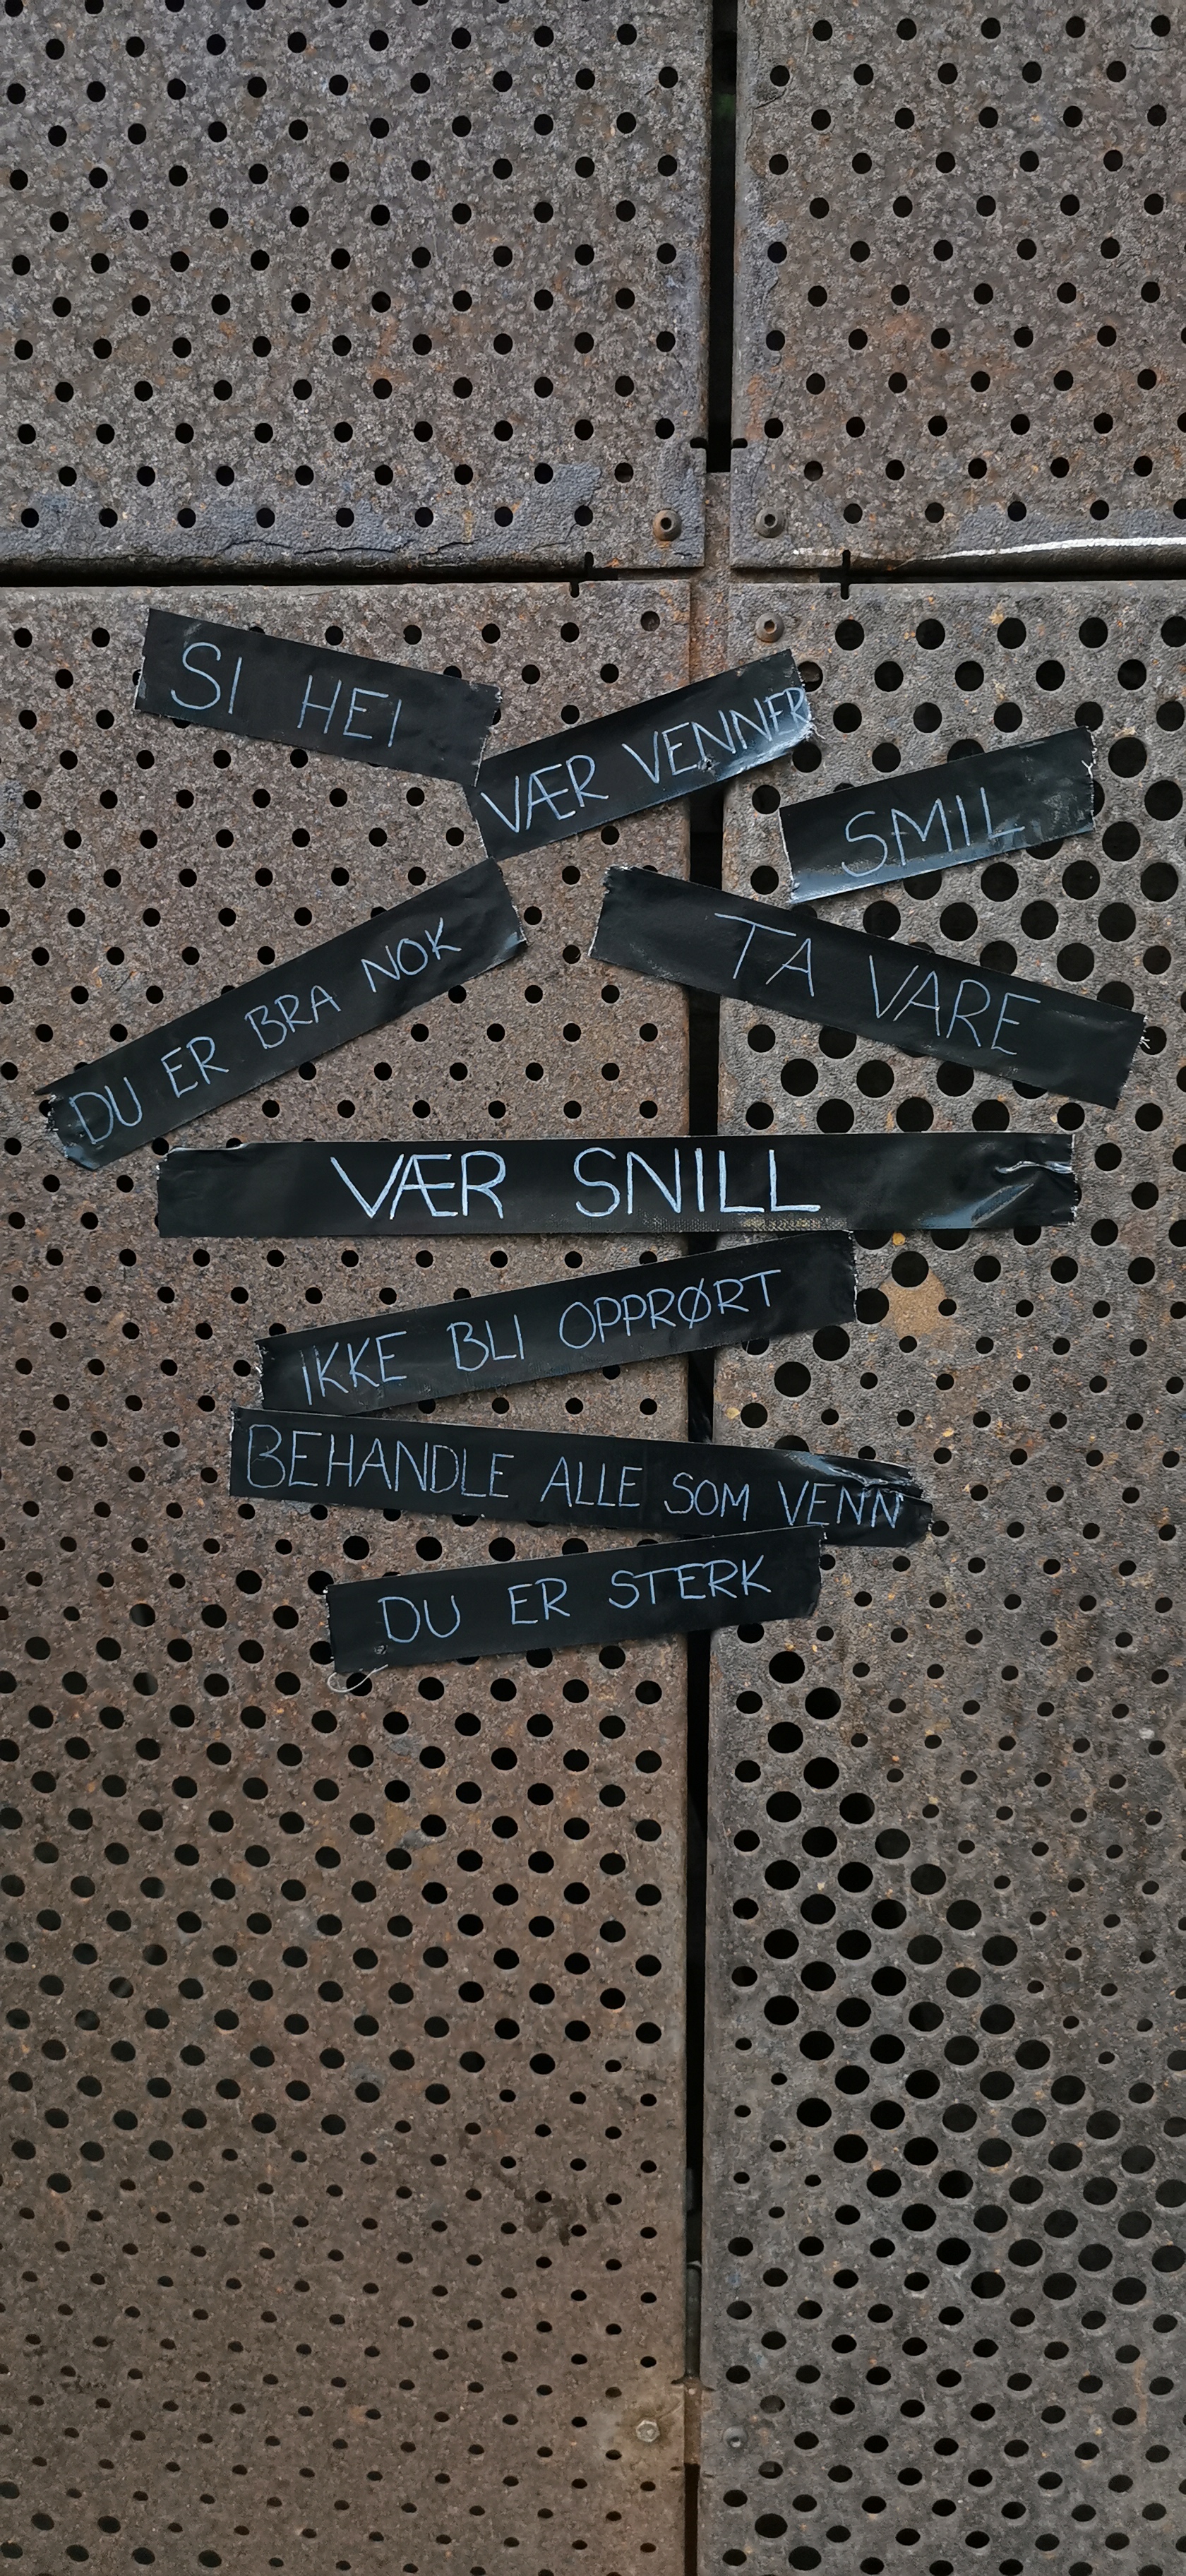 SI HEI
VÆR VENNER
SMIL
DU ER BRA NOK
TA VARE
VÆR SNILL
IKKE BLI OPPRØRT
BEHANDLE ALLE SOM VENN
DU ER STERK